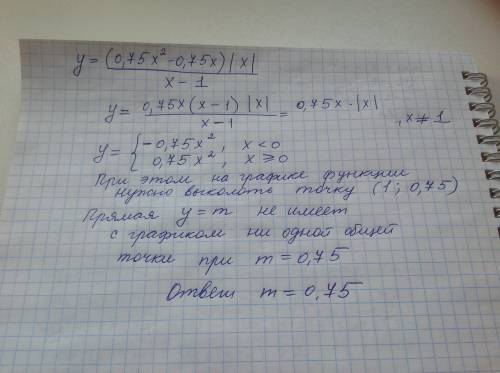 y = (0,75x² - 0,75x) |x| / x - 1
y = 0,75x (x - 1) |x| / x - 1 = 0,75x · |x| , x ≠ 1
y = { - 0,75x², x < 0
0,75x², x ⩾ 0
При этом на графике функции
нужно выколоть точку (1; 0,75)
Прямая y = m не имеет
с графиком ни одной общей
точки при m = 0,75
Ответ m = 0,75